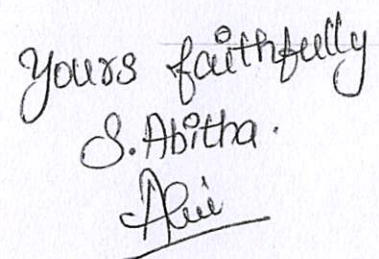 Yours faithfully
S. Abitha.